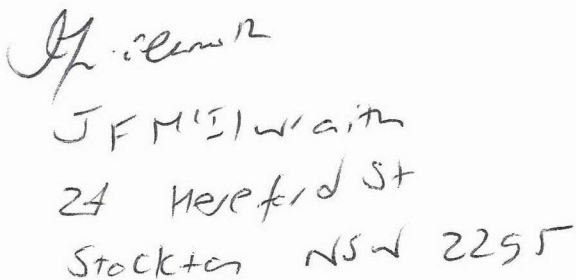 J F M'Ilwraith
24 Hereford St
Stockton NSW 2295